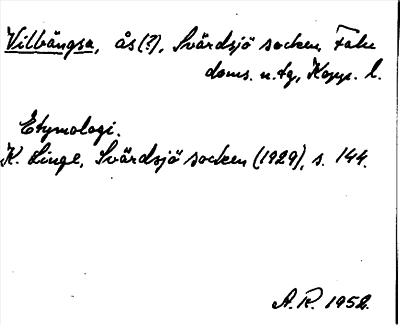 Vilbängsa, ås(?), Svärdsjö socken, Falu
doms. n. tg, Kopp. l.
Etymologi.
K. Linge, Svärdsjö socken (1929), s. 144.
A. R. 1952.